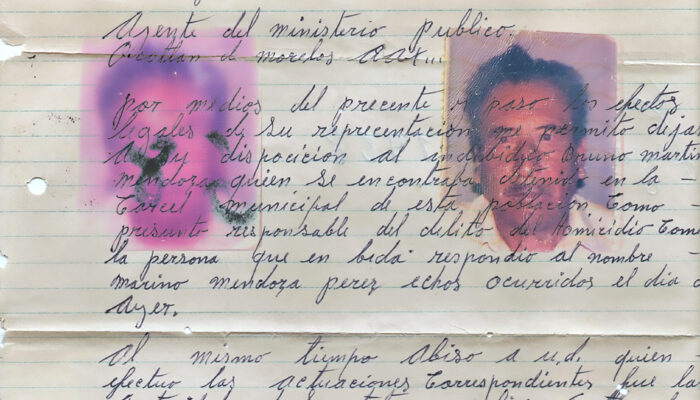 Agente del ministerio publico.
Ocotlan d morelos oax...
por medios del precente y paso los efectos
legales de su reprecentacion me permito dejar
a y dispocicion al indibidico Bruno martin
mendoza quien se encontraba detenido en la -
Carcel municipal de esta poblacion Como -
presunto responsable del delito del Homicidio Come
la persona que en bida respondio al nombre -
marino mendoza perez echos ocurridos el dia d
Ayer.
Al mismo tiempo Abiso a u.d. quien
efectuo las actuaciones Correspondientes fue la